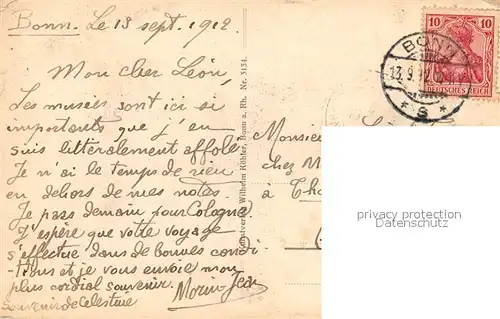 Bonn. Le 13 sept. 1912.
Mon cher Léon,
Les musées sont ici si
importants que j'en
suis littéralement affolé.
Je n'ai le temps de rien
en dehors de mes notes.
Je pars demain pour Cologne.
J'espère que votre voyage
s'effectue dans de bonnes condi-
tions et je vous envoie mon
plus cordial souvenir.
Morin-Jean
Souvenir de Celestine
Kunstverlag Wilhelm Köhler, Bonn a. Rh. Nr. 3154.
10 10
DEUTSCHES REICH
BONN
13.9.12
* S *
Monsieur
chez M
à
privacy protection
www.oldthing.de